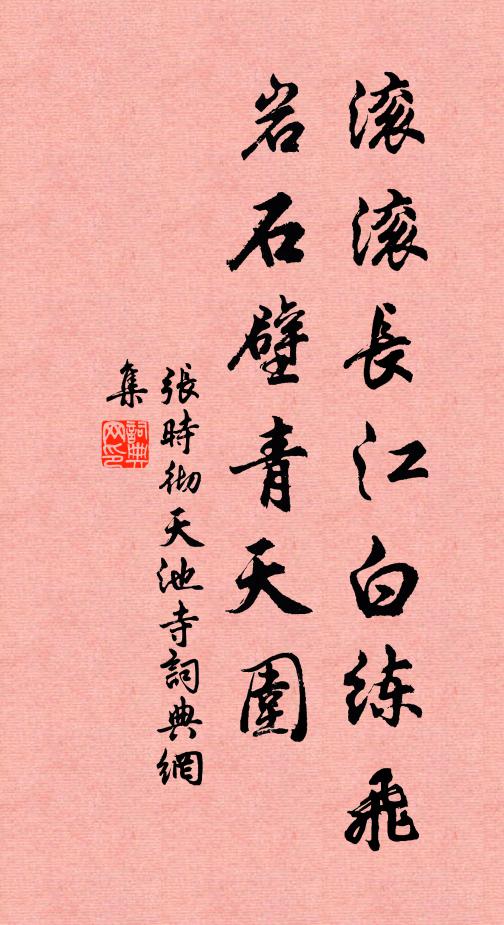 滚滚長江白练飛
岩石壁青天圍
張時彻天池寺詞典網
集
詞典
网印